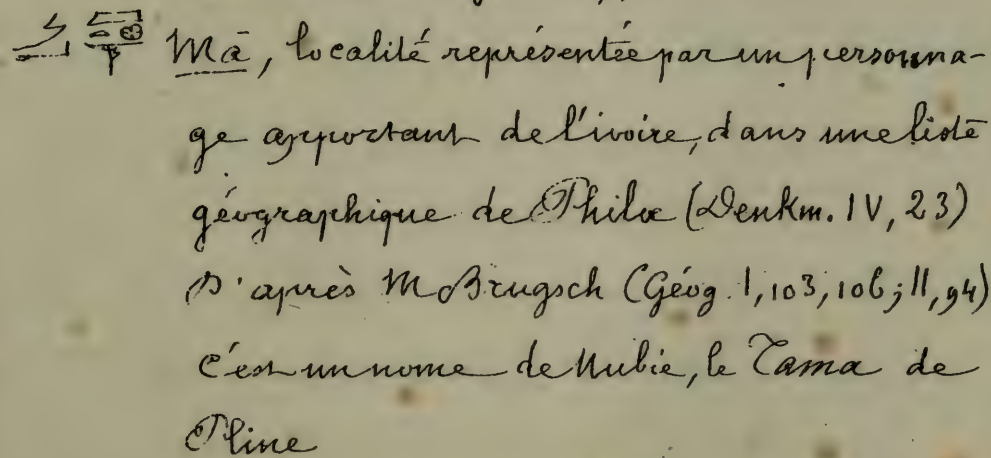 Mā, localité représentée par un personna-
ge apportant de l'ivoire, dans une liste
géographique de Philæ (Denkm. IV, 23)
D'après M Brugsch (Géog. I, 103, 106; II, 94)
c'est un nome de Nubie, le Tama de
Pline